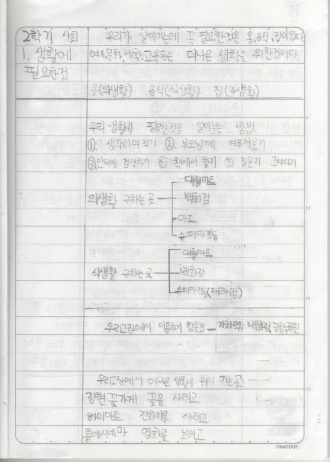 2학기 사회
1. 생활에
필요한것
우리가 살아가는데 꼭 필요한것은 옷, 음식, 집이있다
여가, 문화, 생활, 교육등은 더나은 생활을 위한것이다.
옷(의생활) 음식(식생활) 집(주생활)
우리 생활에 필요한것을 알아보는 방법
① 생각하며 찾기 ② 부모님께 여쭈어보기
③ 인터넷 검색하기 ④ 책에서 찾기 ⑤
대형마트
의생활 구하는 곳 백화점
마트
슈퍼마켓등
대형마트
식생활 구하는 곳 백화점
슈퍼마켓등
우리고장에서
우리고장에서 더나은 생활을 위해 가는곳
장현 꽃가게 꽃을 사려고
하이마트 전화기를 사려고
롯데시네마 영화를 보려고